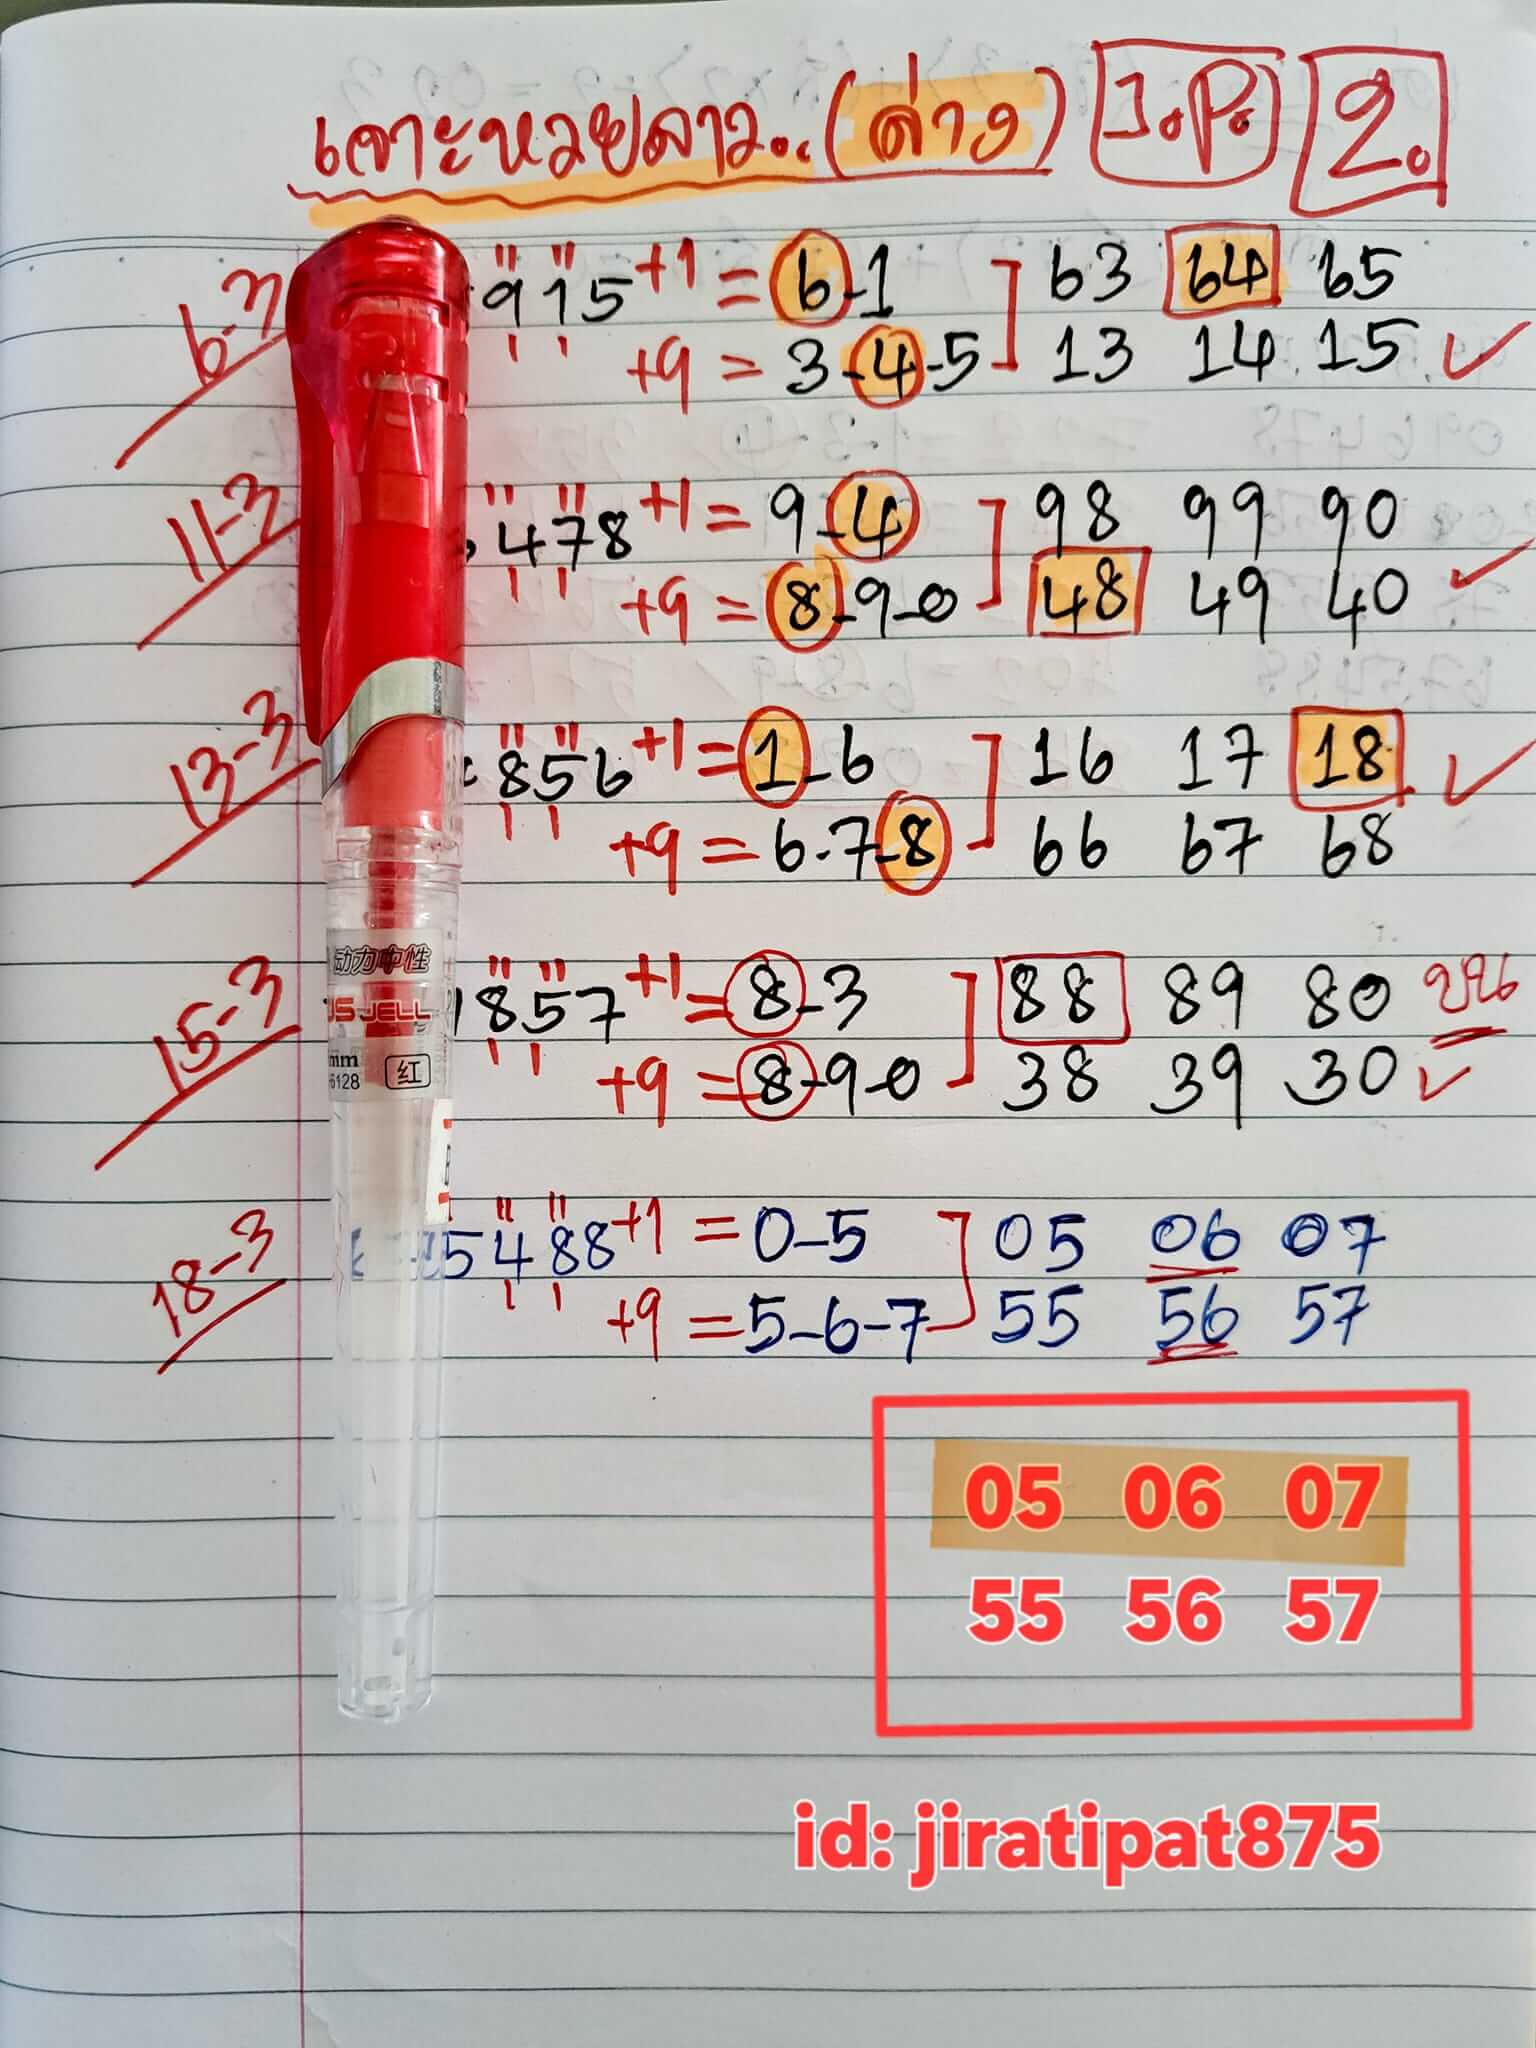 เจาะหวยลาว..(ล่าง) J.P. 2.
6-3 915 +1 = 6-1 63 64 65
+9 = 3-4-5 13 14 15
11-3 478 +1 = 9-4 98 99 90
+9 = 8-9-0 48 49 40
13-3 856 +1 = 1-6 16 17 18
+9 = 6-7-8 66 67 68
动力中性
15-3 1857 +1 = 8-3 88 89 80 บน
US JELL
+9 = 8-9-0 38 39 30
mm
6128
红
18-3 5488 +1 = 0-5 05 06 07
+9 = 5-6-7 55 56 57
05 06 07
55 56 57
id: jiratipat875